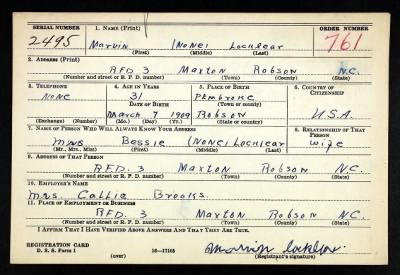 SERIAL NUMBER 1. NAME (Print) ORDER NUMBER
2495 Marvin (None) Locklear 761
(First) (Middle) (Last)
2. ADDRESS (Print)
RFD. 3 Maxton Robson N.C.
(Number and street or R. F. D. number) (Town) (County) (State)
3. TELEPHONE 4. AGE IN YEARS 5. PLACE OF BIRTH 6. COUNTRY OF CITIZENSHIP
None 31 Pembroke
DATE OF BIRTH (Town or county)
March 7 1909 Robson U.S.A.
(Mo.) (Day) (Yr.) (State or country)
7. NAME OF PERSON WHO WILL ALWAYS KNOW YOUR ADDRESS 8. RELATIONSHIP OF THAT PERSON
Mrs Bessie (None) Locklear wife
(Mr., Mrs., Miss) (First) (Middle) (Last)
9. ADDRESS OF THAT PERSON
RFD. 3 Maxton Robson N.C.
(Number and street or R. F. D. number) (Town) (County) (State)
10. EMPLOYER'S NAME
Mrs. Callie Brooks.
11. PLACE OF EMPLOYMENT OR BUSINESS
RFD. 3 Maxton Robson N.C.
(Number and street or R. F. D. number) (Town) (County) (State)
I AFFIRM THAT I HAVE VERIFIED ABOVE ANSWERS AND THAT THEY ARE TRUE.
REGISTRATION CARD
D. S. S. Form 1 16—17105 Marvin Locklear
(over) (Registrant's signature)